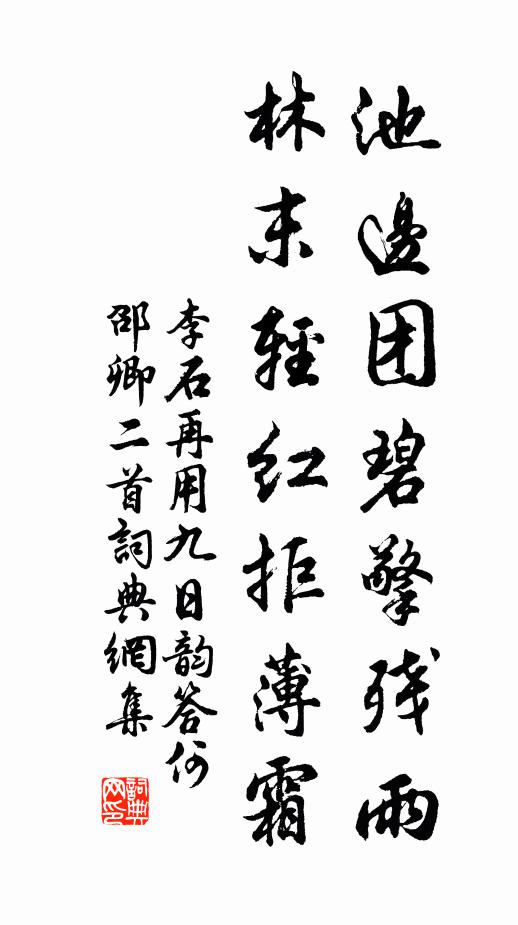 池邊团碧擎残雨
林末輕红拒薄霜
李石再用九日韵答何
邵卿二首詞典網集
詞典